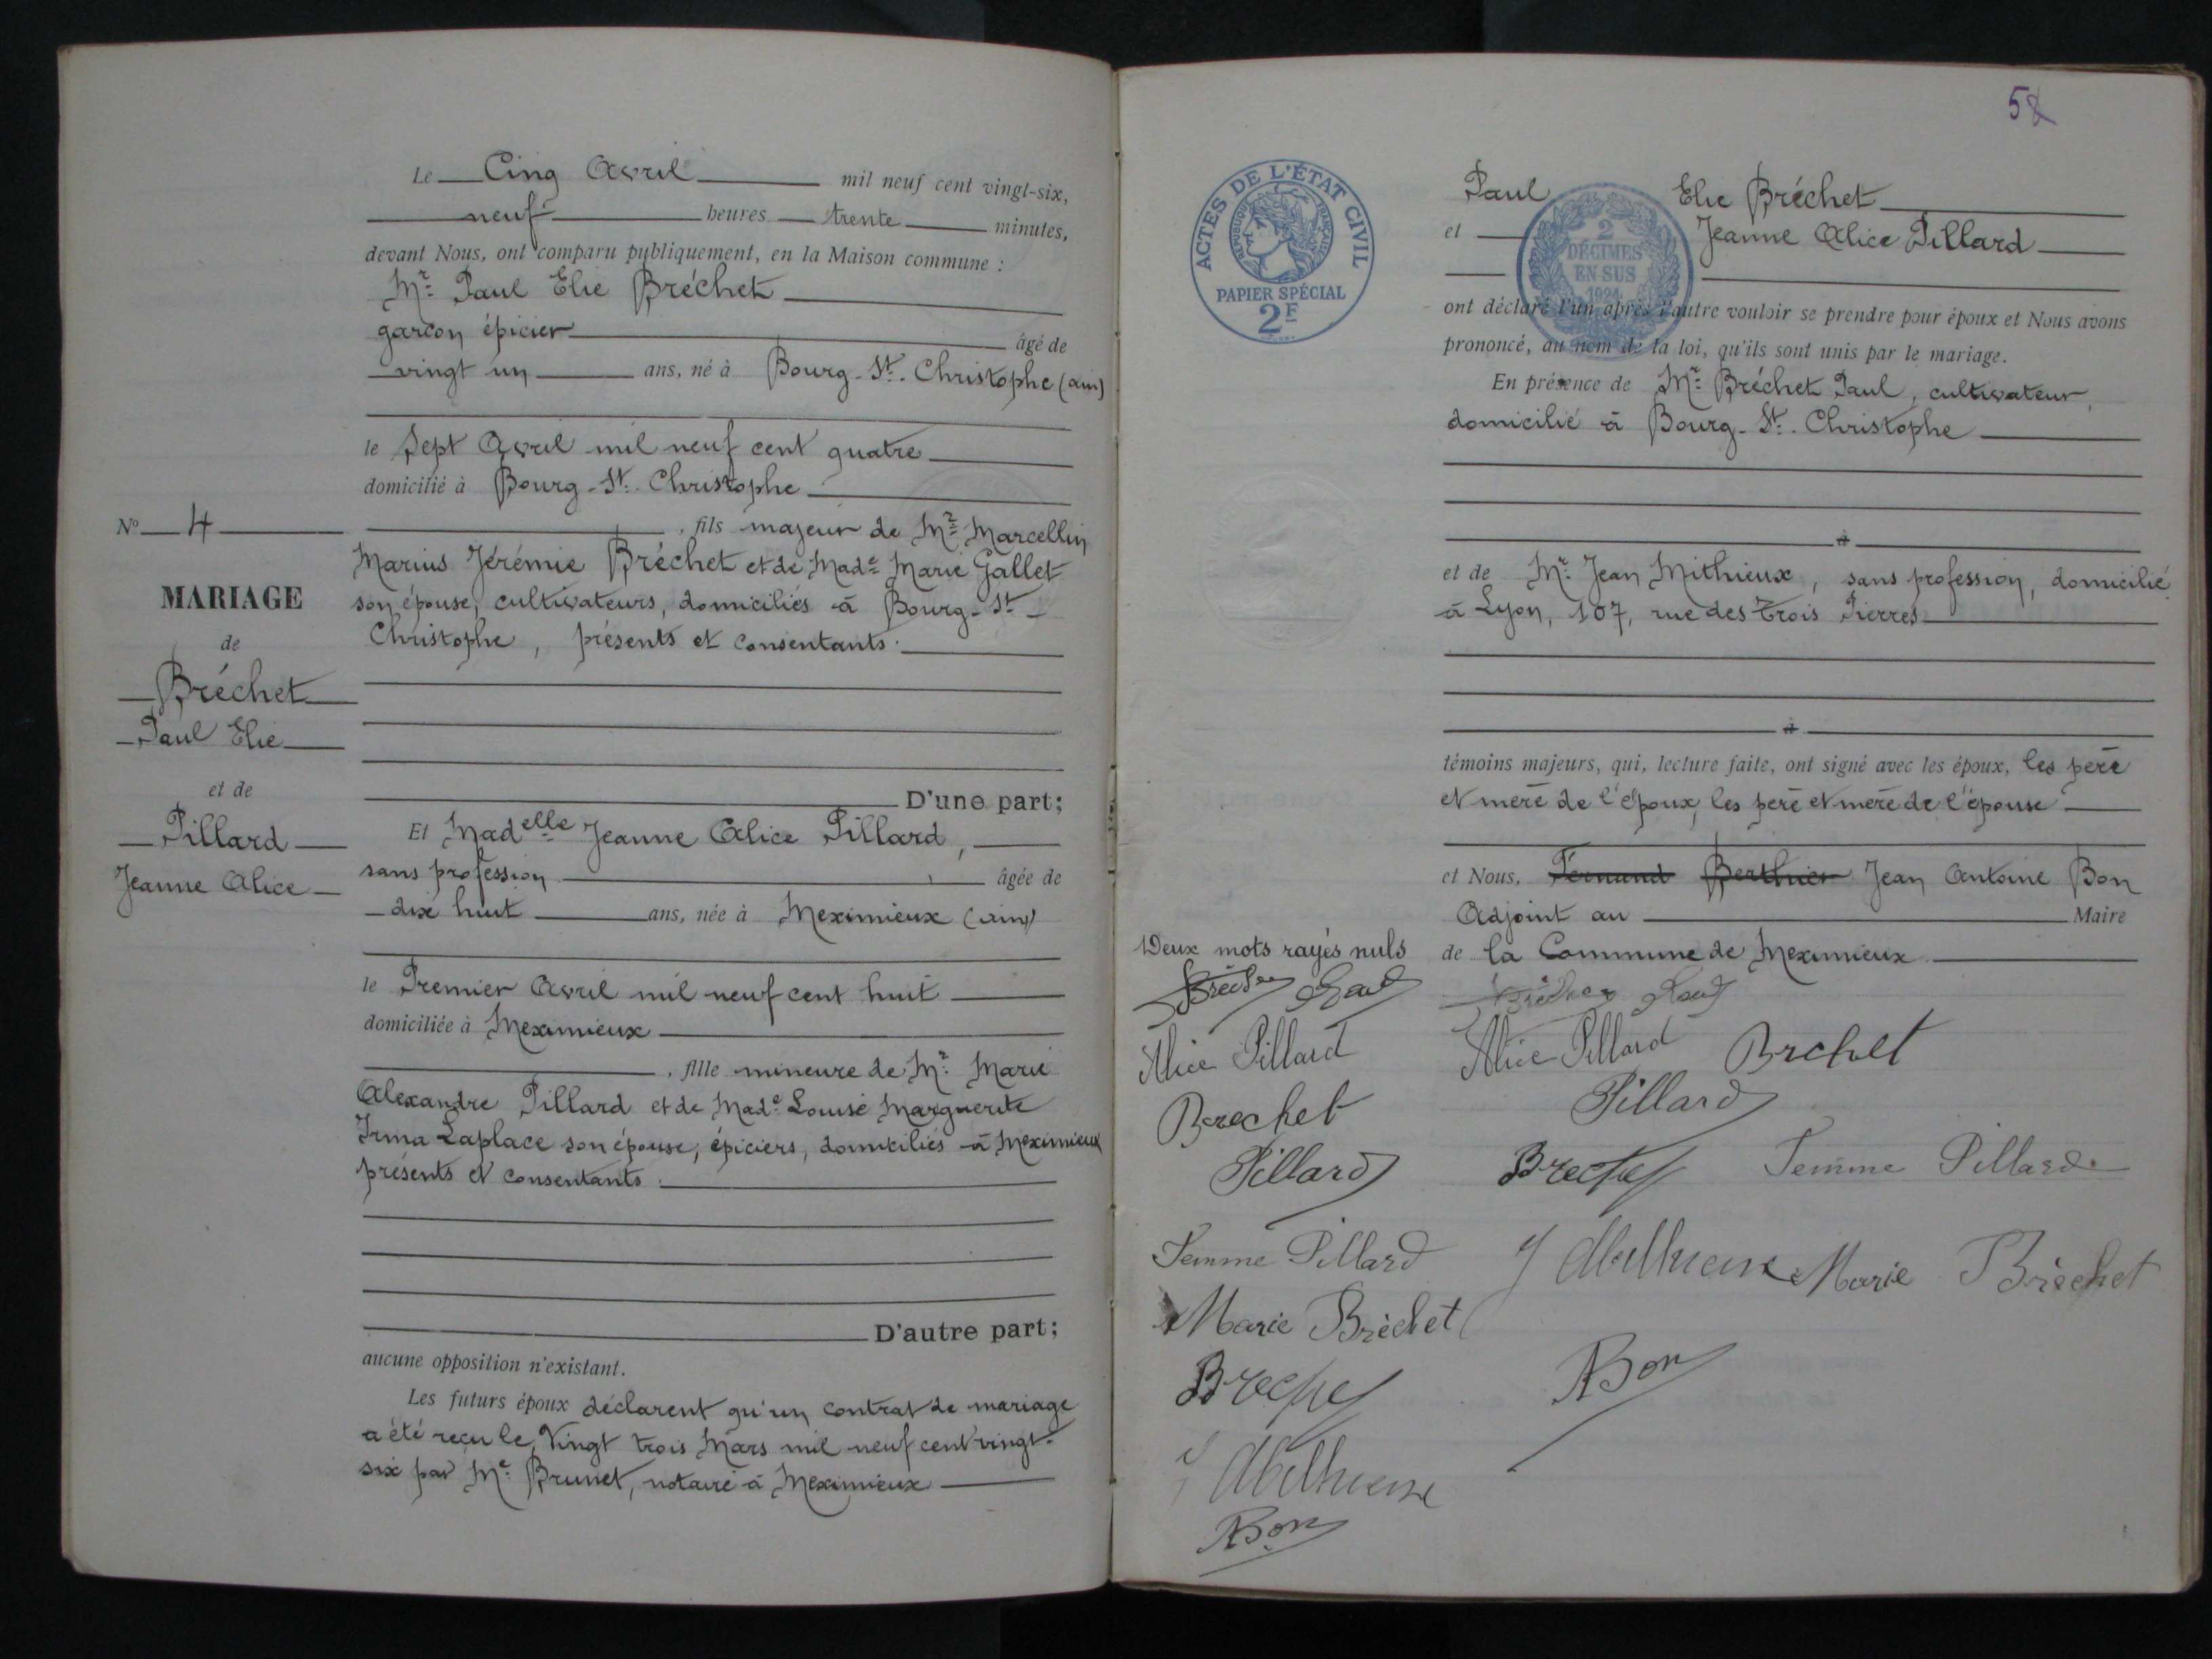 Le Cinq Avril mil neuf cent vingt-six,
neuf heures trente minutes,
devant Nous, ont comparu publiquement, en la Maison commune :
Mr Paul Elie Bréchet
garçon épicier âgé de
vingt un ans, né à Bourg-St-Christophe (ain)
le Sept Avril mil neuf cent quatre
domicilié à Bourg-St-Christophe
, fils majeur de Mr Marcellin
Marius Jérémie Bréchet et de Made Marie Gallet
son épouse, cultivateurs, domiciliés à Bourg-St-
Christophe, présents et consentants.
D'une part;
Et Madelle Jeanne Alice Pillard,
sans profession âgée de
dix huit ans, née à Meximieux (ain)
le Premier Avril mil neuf cent huit
domiciliée à Meximieux
, fille mineure de Mr Marie
Alexandre Pillard et de Made Louise Marguerite
Irma Laplace son épouse, épiciers, domiciliés à Meximieux
présents et consentants.
D'autre part;
aucune opposition n'existant.
Les futurs époux déclarent qu'un contrat de mariage
a été reçu le Vingt trois Mars mil neuf cent vingt-
six par Me Brunet, notaire à Meximieux
No 4
MARIAGE
de
Bréchet
Paul Elie
et de
Pillard
Jeanne Alice
58
ACTES DE L'ÉTAT CIVIL
RÉPUBLIQUE FRANÇAISE
PAPIER SPÉCIAL
2F
2
DÉCIMES
EN SUS
1924
Paul Elie Bréchet
et Jeanne Alice Pillard
ont déclaré l'un après l'autre vouloir se prendre pour époux et Nous avons
prononcé, au nom de la loi, qu'ils sont unis par le mariage.
En présence de Mr Bréchet Paul, cultivateur,
domicilié à Bourg-St-Christophe
et de Mr Jean Mithieux, sans profession, domicilié
à Lyon, 107, rue des Trois Pierres
témoins majeurs, qui, lecture faite, ont signé avec les époux, les père
et mère de l'époux, les père et mère de l'épouse
et Nous, Fernand Berthier Jean Antoine Bon
Adjoint au Maire
de la Commune de Meximieux
Deux mots rayés nuls
Alice Pillard
Brechet
Pillard
Femme Pillard
Marie Brèchet
Brechet
J Mithieux
ABon
Alice Pillard Brechet
Pillard
Brechet Femme Pillard
J Mithieux Marie Brèchet
ABon